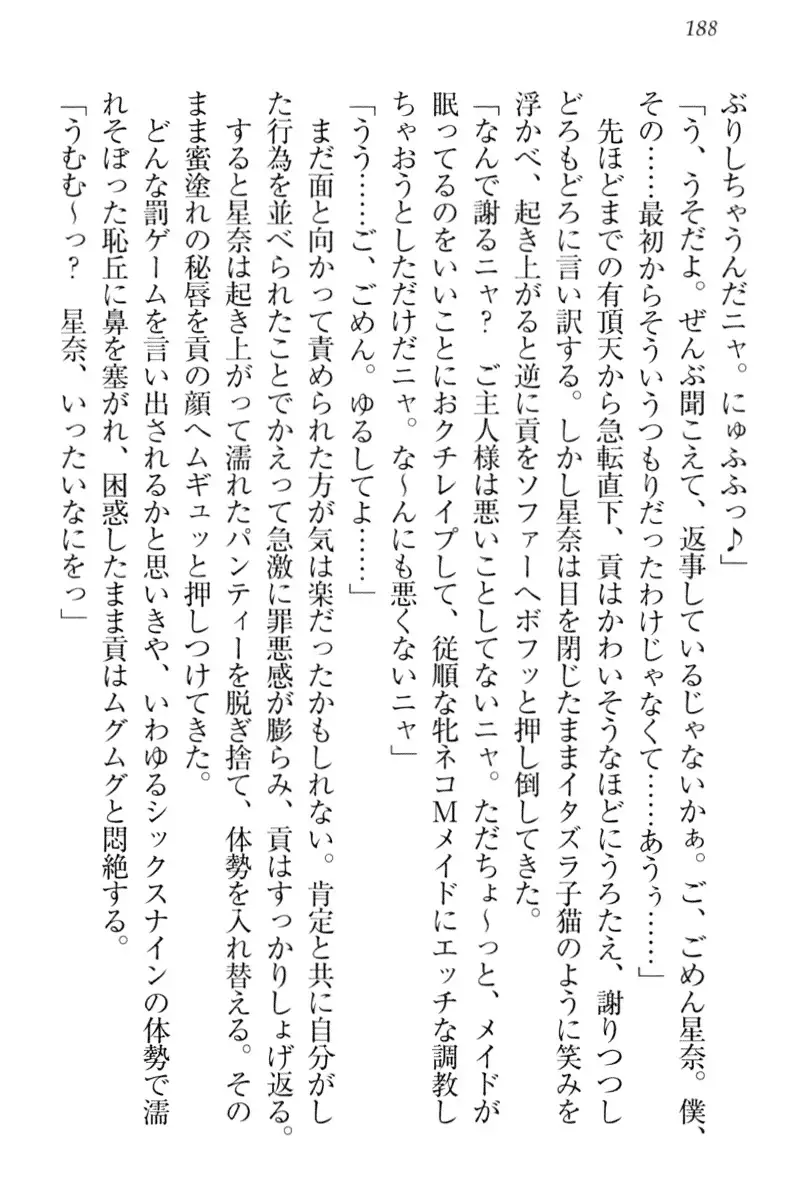 188
ぶりしちゃうんだニャ。にゅふふっ♪」
「う、うそだよ。ぜんぶ聞こえて、返事しているじゃないかぁ。ご、ごめん星奈。僕、
その……最初からそういうつもりだったわけじゃなくて……あうぅ……」
　先ほどまでの有頂天から急転直下、貢はかわいそうなほどにうろたえ、謝りつつし
どろもどろに言い訳する。しかし星奈は目を閉じたままイタズラ子猫のように笑みを
浮かべ、起き上がると逆に貢をソファーへボフッと押し倒してきた。
「なんで謝るニャ？　ご主人様は悪いことしてないニャ。ただちょ～っと、メイドが
眠ってるのをいいことにおクチレイプして、従順な牝ネコＭメイドにエッチな調教し
ちゃおうとしただけだニャ。な～んにも悪くないニャ」
「うう……ご、ごめん。ゆるしてよ……」
　まだ面と向かって責められた方が気は楽だったかもしれない。肯定と共に自分がし
た行為を並べられたことでかえって急激に罪悪感が膨らみ、貢はすっかりしょげ返る。
　すると星奈は起き上がって濡れたパンティーを脱ぎ捨て、体勢を入れ替える。その
まま蜜塗れの秘唇を貢の顔へムギュッと押しつけてきた。
　どんな罰ゲームを言い出されるかと思いきや、いわゆるシックスナインの体勢で濡
れそぼった恥丘に鼻を塞がれ、困惑したまま貢はムグムグと悶絶する。
「うむむ～っ？　星奈、いったいなにをっ」